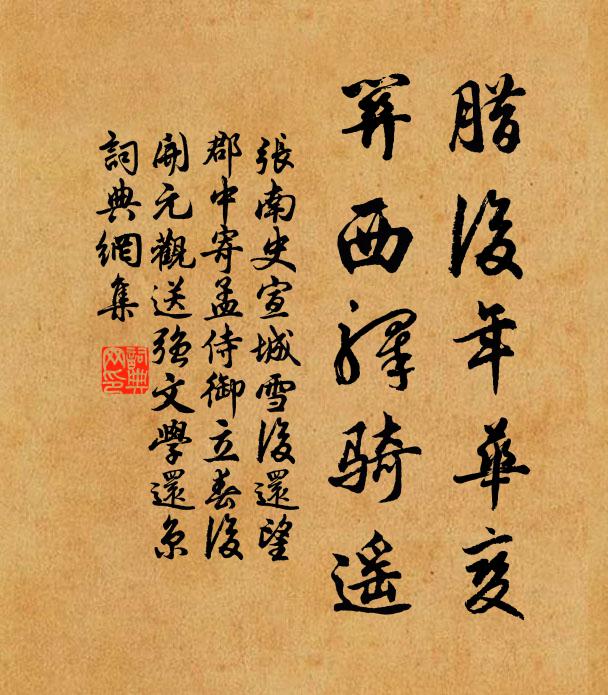 腊後年華變
關西驛騎遥
張南史宣城雪後還望
郡中寄孟侍御立春後
開元觀送强文學還京
詞典網集
詞典网印